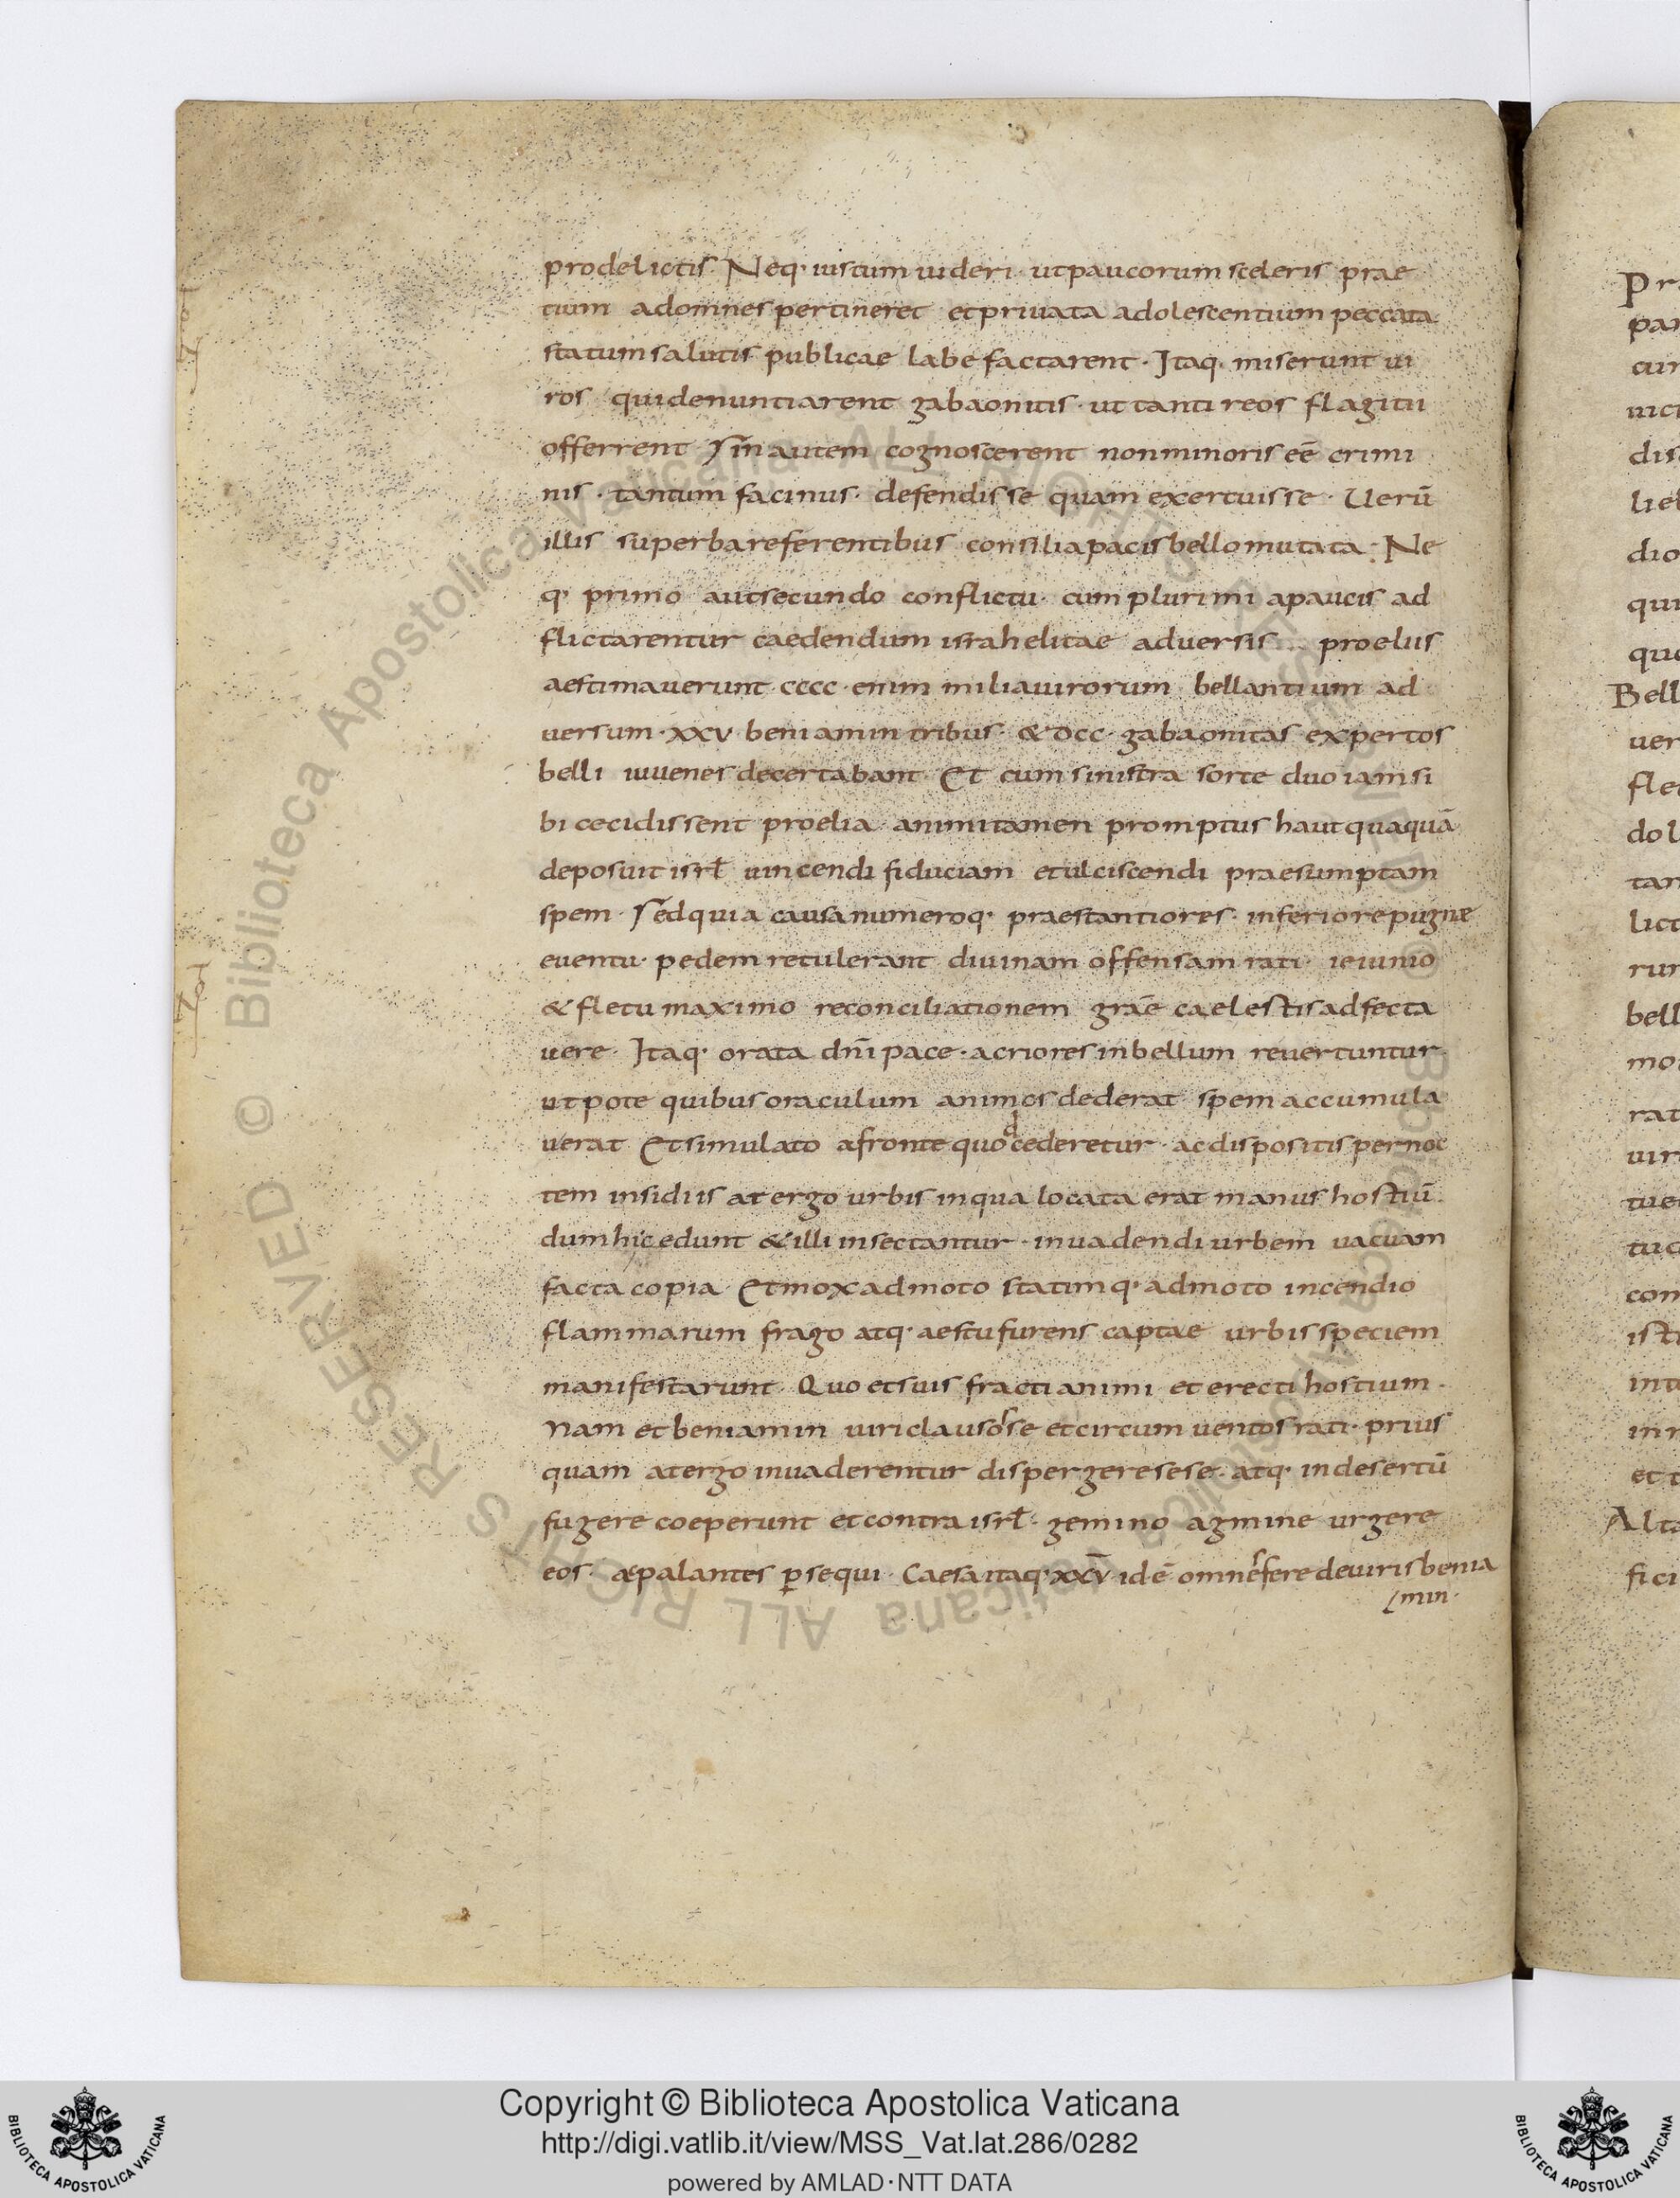 prodelictis. Neq· iustum uideri· utpaucorum sceleris prae
tium adomnes pertineret etpriuata adolescentium peccata
statum salutis publicae labefactarent· Itaq· miserunt ui
ros quidenuntiarent gabaonitis· ut tanti reos flagitii
offerrent· Sin autem cognoscerent nonminoris eē crimi
nis· tantum facinus· defendisse quam exercuisse· Uerū
illis superbareferentibus consiliapacis bellomutata· Ne
q· primo autsecundo conflictu· cum plurimi apaucis ad
flictarentur caedendum israhelitae aduersis proeliis
aestimauerunt· cccc· enim miliauirorum bellantium ad
uersum· xxv· beniamin tribus· & dcc· gabaonitas expertos
belli iuuenes decertabant· Et cum sinistra sorte duo iamsi
bi cecidissent proelia· animitamen promptus hautquaquā
deposuit isrł uincendi fiduciam etulciscendi praesumptam
spem· Sedquia causa numeroq· praestantiores· inferiorepugnae
euentu· pedem retulerant diuinam offensam rati· ieiunio
& fletu maximo reconciliationem grāe caelestis adfecta
uere· Itaq· orata dnī pace· acriores inbellum reuertuntur
utpote quibus oraculum animos dederat· spem accumula
uerat Et simulato afronte quodcederetur· ac dispositis pernoc
tem insidiis atergo urbis inqua locata erat manus hostiū
dum hicedunt & illi insectantur· inuadendi urbem uacuam
facta copia· Etmox admoto statimq· admoto incendio
flammarum frago atq· aestufurens captae urbis speciem
manifestarunt· Quo etsuis fracti animi et erecti hostium·
Nam et beniamin uiri clausos se etcircum uentos rati· prius
quam atergo inuaderentur dispergeresese· atq· indesertū
fugere coeperunt et contra isrł· gemino agmine urgere
eos· acpalantes p̱sequi· Caesa itaq· xxv̄ idē omnes fere deuiris benia
min·
Copyright © Biblioteca Apostolica Vaticana
http://digi.vatlib.it/view/MSS_Vat.lat.286/0282
powered by AMLAD·NTT DATA